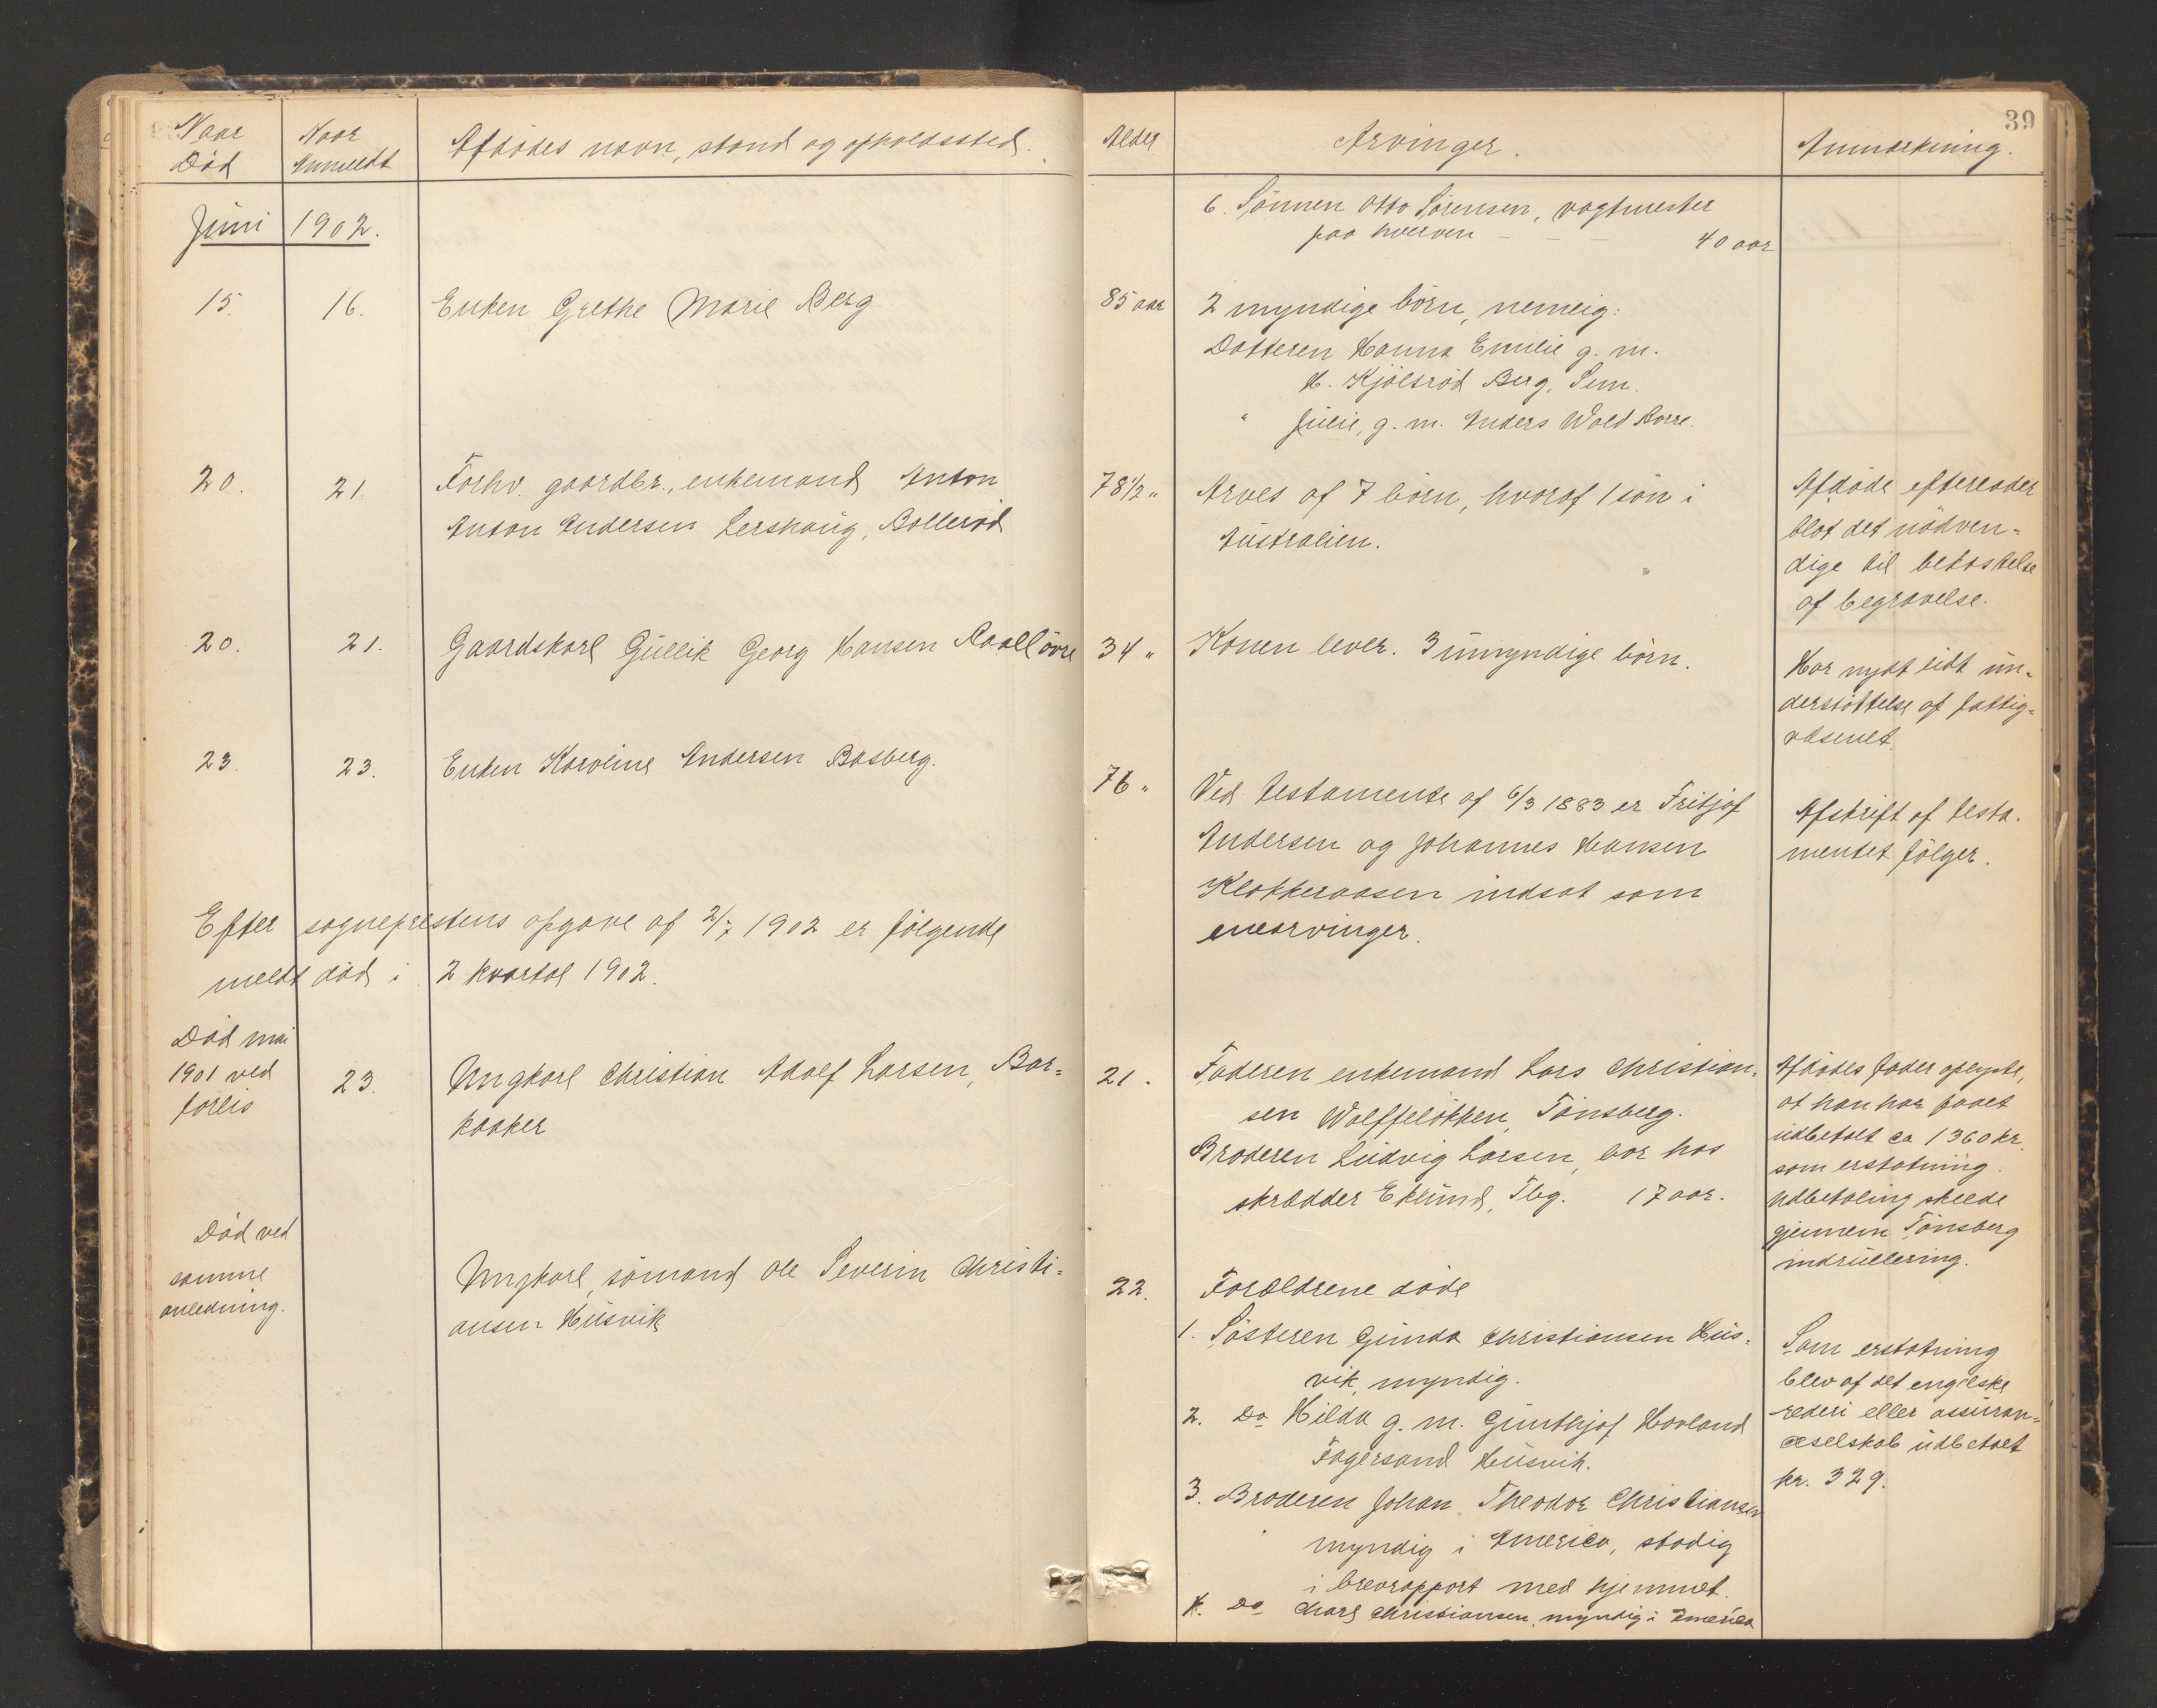 39
Naar Død
Naar Anmeldt
Afdödes navn, stand og opholdssted.
Alder
Arvinger.
Anmærkning.
Juni 1902.
6. Sönnen Otto Sörensen, vagtmester
paa hverven — — — 40 aar
15.
16.
Enken Grethe Marie Berg
85 aar
2 myndige börn, nemlig:
Datteren Hanna Emilie g. m.
H. Kjölsröd Berg, Sem.
" Julie, g. m. Anders Wold Borre.
20.
21.
Forhv. gaardbr., enkemand Anton
Anton Andersen Lershaug, Bolleröd
78 1/2 "
Arves af 7 börn, hvoraf 1 sön i
Australien.
Afdöde efterlader
blot det nödven=
dige til bekostelse
af begravelse.
20.
21.
Gaardskarl Gullik Georg Hansen Raaell övre
34 "
Konen lever. 3 umyndige börn.
Har nydt lidt un=
derstöttelse af fattig=
væsenet.
23.
23.
Enken Karoline Andersen Basberg.
76 "
Ved testamente af 6/3 1883 er Fritjof
Andersen og Johannes Hansen
Klokkeraasen indsat som
enearvinger.
Afskrift af testa.
mentet fölger.
Efter sogneprestens opgave af 2/7 1902 er fölgende
meldt död i 2 kvartal 1902.
Död mai
1901 ved
forlis
23.
Ungkarl Christian Adolf Larsen, Bar=
kaaker
21.
Faderen enkemand Lars Christian.
sen Wolffelökken, Tönsberg.
Broderen Ludvig Larsen, bor hos
skrædder Eklund, Tbg. 17 aar.
Afdödes fader oplyste,
at han har faaet
udbetalt ca 1360 kr.
som erstatning.
Udbetaling skeede
gjennem Tönsberg
indrullering.
Död ved
samme
anledning.
Ungkarl, sömand Ole Severin Christi=
ansen Husvik
22.
Forældrene döde
1. Sösteren Gunda Christiansen Hus=
vik, myndig.
2. Do Hilda g. m. Gunthjof Hovland
Fagersand Husvik.
3. Broderen Johan Theodor Christiansen
myndig i America, stadig
i brevrapport med hjemmet.
4. Do Charl Christiansen, myndig i America
Som erstatning
blev af det engelske
rederi eller assuran=
ceselskab udbetalt
kr. 329.